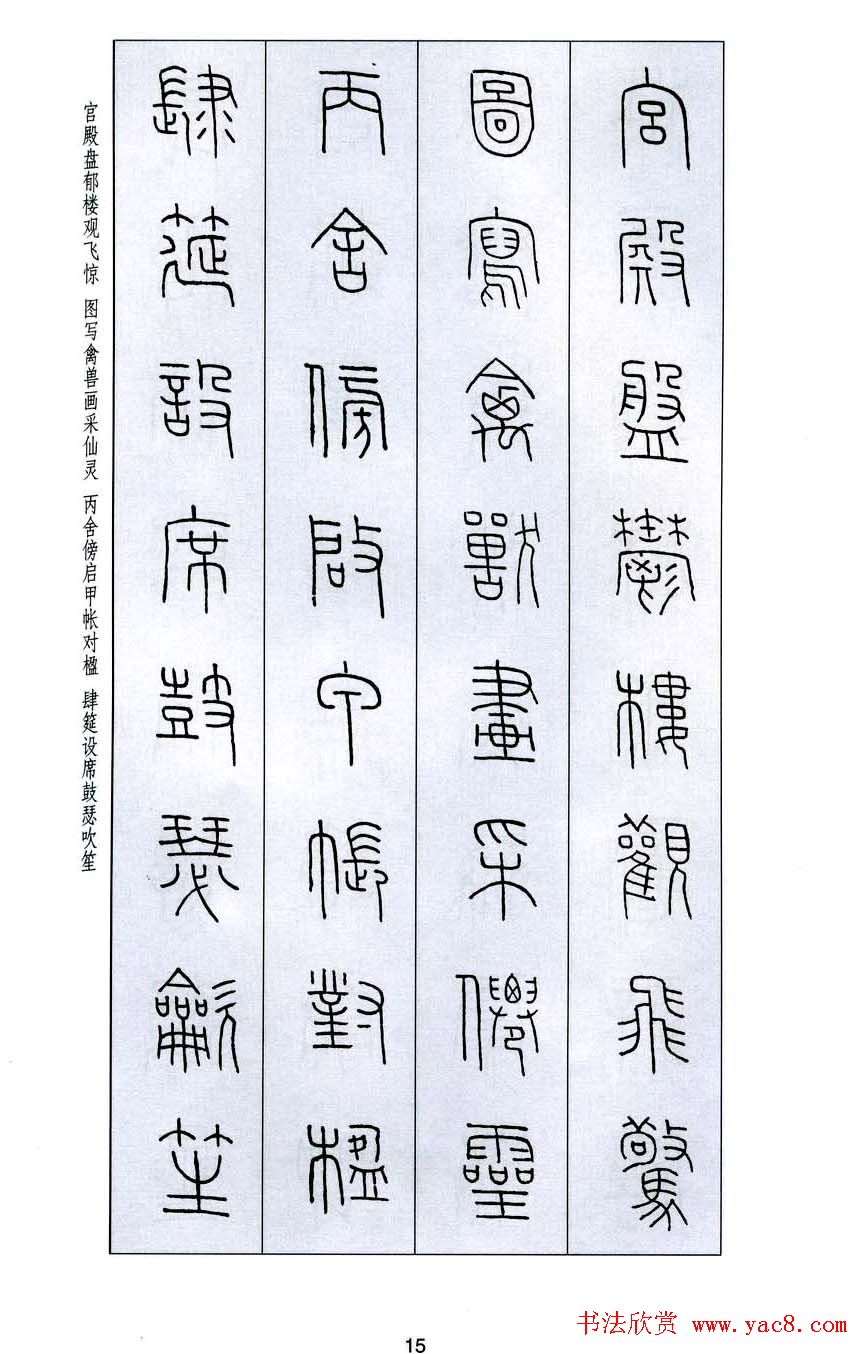 宮殿盤鬱樓觀飛驚
圖寫禽獸畫采僊靈
丙舍傍啟甲帳對楹
肆筵設席鼓瑟龡笙
官殿盘郁楼观飞惊 图写禽兽画采仙灵 丙舍傍启甲帐对楹 肆筵设席鼓瑟吹笙
书法欣赏 www.yac8.com
15